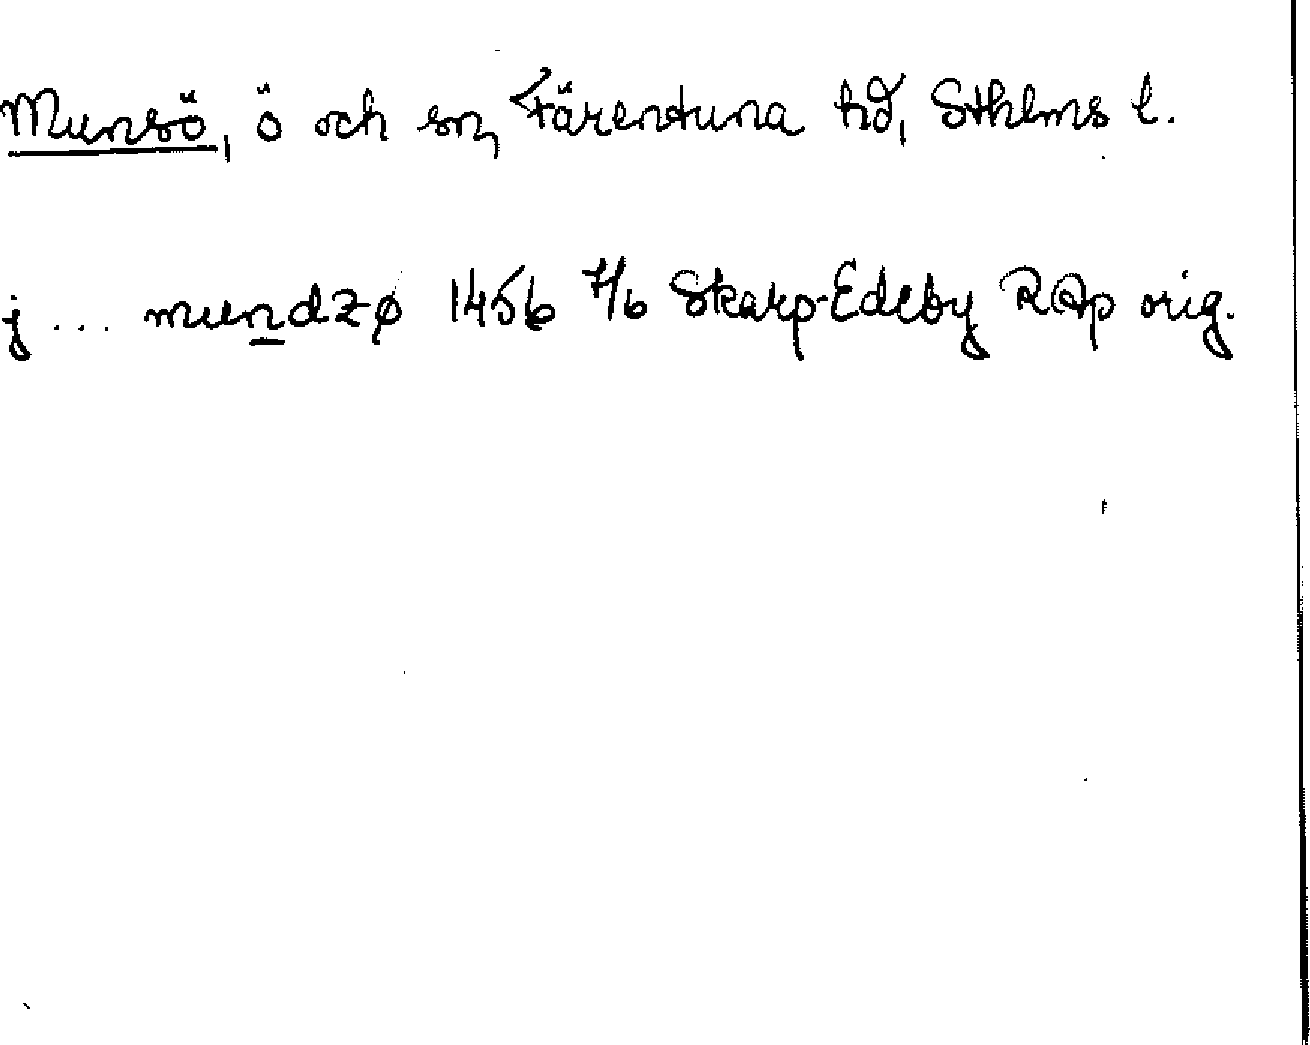 Munsö, ö och sn, Färentuna hd, Sthlms l.
j ... mundzø 1456 7/6 Skarp-Edeby RAp orig.